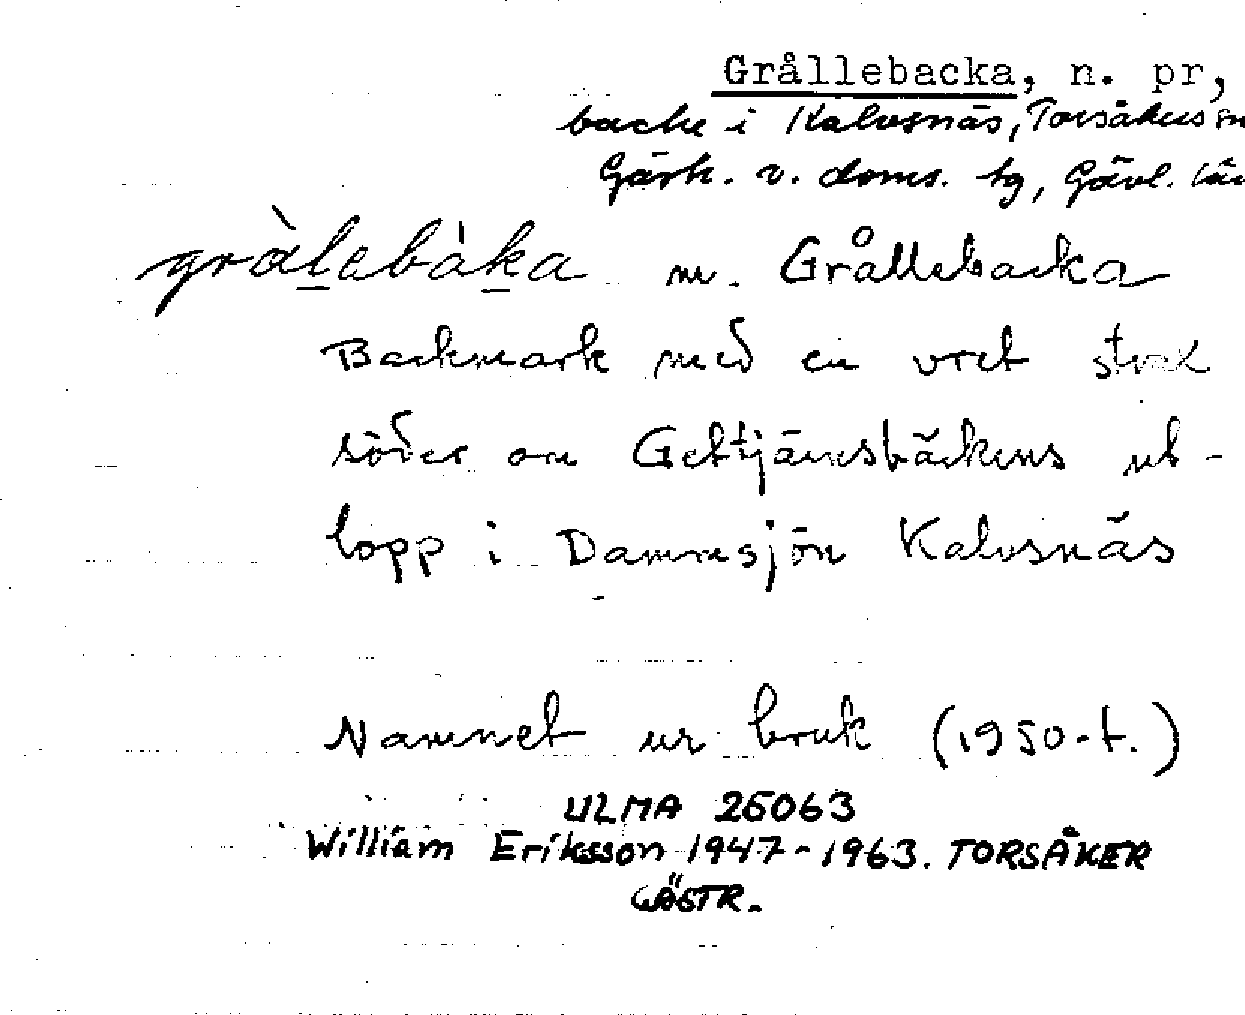 Grållebacka, n. pr,
backe i Kalvsnäs, Torsåkers sn
Gästr. v. doms. tg, Gävl. län
gràlebàka m. Grållebacka
Backmark med en vret strax
söder om Gettjärnsbäckens ut-
lopp i Dammsjön Kalvsnäs
Namnet ur bruk (1950-t.)
ULMA 26063
William Eriksson 1947-1963. TORSÅKER
GÄSTR.